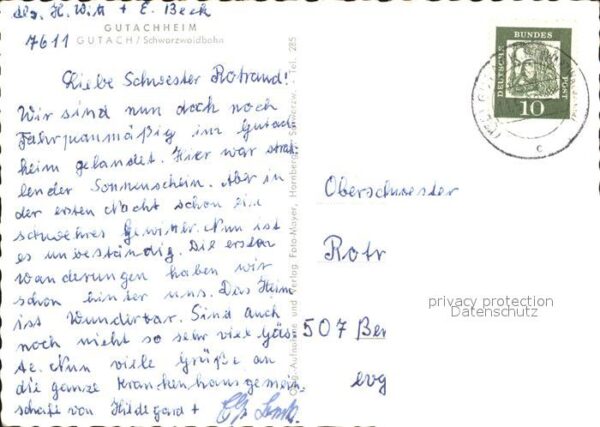 Abs. H. Witt + E. Beck
GUTACHHEIM
7611 GUTACH / Schwarzwaldbahn
Liebe Schwester Rotraud!
Wir sind nun doch noch
Fahrpanmäßig im Gutach-
heim gelandet. Hier war strah-
lender Sonnenschein. Aber in
der ersten Nacht schon ein
schwehres Gewitter. Nun ist
es unbeständig. Die ersten
Wanderungen haben wir
schon hinter uns. Das Heim
ist Wunderbar. Sind auch
noch nicht so sehr viel Gäs-
te. Nun viele Grüße an
die ganze Krankenhausgemein-
schaft von Hildegard +
Orig.-Aufnahme und Verlag Foto-Mayer, Hornberg Schwarzw. - Tel. 285
DEUTSCHE BUNDES POST
10
c
Oberschwester
Rotr
507 Ber
evg
privacy protection
Datenschutz